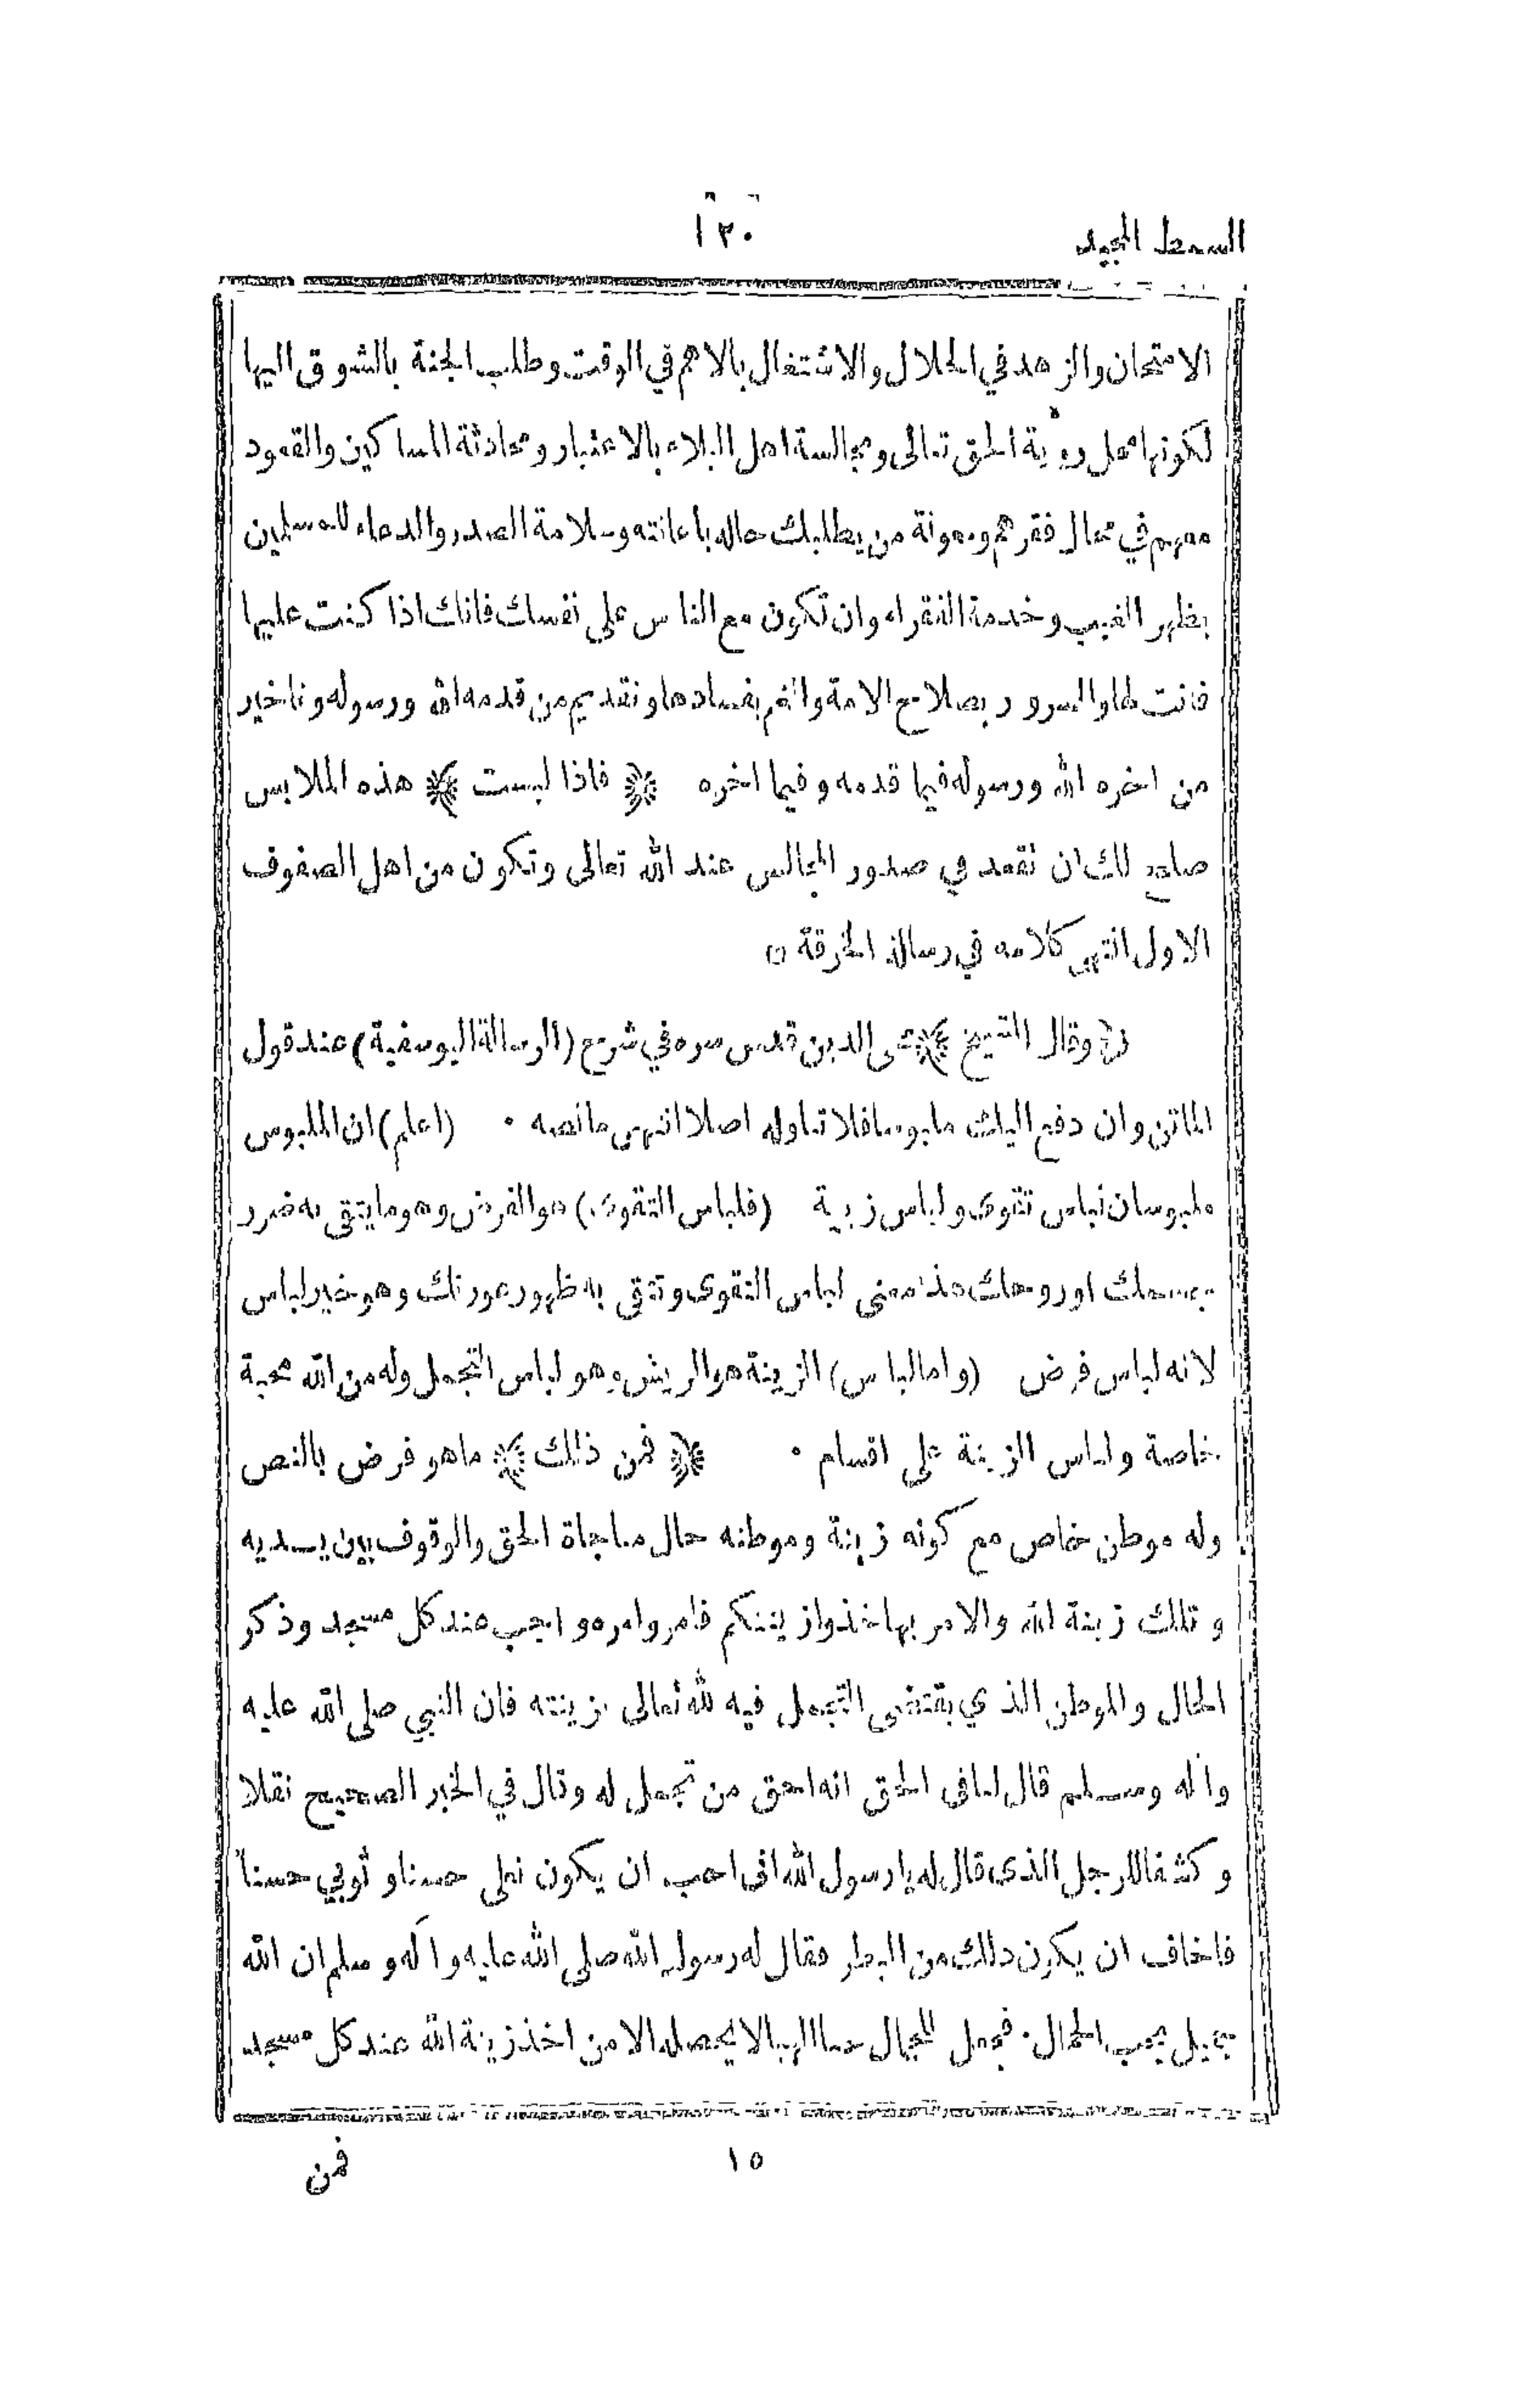 السمط المجيد
١٢٠
الامتحان والزهد في الحلال والاشتغال بالاهم في الوقت وطلب الجنة بالشوق اليها
لكونها محل روية الحق تعالى ومجالسة اهل البلاء بالاعتبار ومحادثة المساكين والقعود
معهم في محال فقرهم ومعونة من يطلبك حاله باعانته وسلامة الصدر والدعاء للمسلمين
بظهر الغيب وخدمة الفقراء وان تكون مع الناس على نفسك فانك اذا كنت عليها
فانت لها والسرور بصلاح الامة والغم بفسادها وتقديم من قدمه الله ورسوله وتاخير
من اخره الله ورسوله فيما قدمه وفيما اخره ﴿ فاذا لبست ﴾ هذه الملابس
صلح لك ان تقعد في صدور المجالس عند الله تعالى وتكون من اهل الصفوف
الاول انتهى كلامه في رسالة الخرقة ٥
﴿ وقال الشيخ ﴾ محى الدين قدس سره في شرح (الرسالة اليوسفية) عند قول
الماتن وان دفع اليك ملبوسا فلا تناوله اصلا انتهى ما نصه ٠ (اعلم) ان الملبوس
ملبوسان لباس تقوى ولباس زينة (فلباس التقوى) هو الفرض وهو ما يتقى به ضرر
جسمك او روحك هذا معنى لباس التقوى وتتقى به ظهور عورتك وهو خير لباس
لانه لباس فرض (واما لباس) الزينة هو الريش وهو لباس التجمل وله من الله محبة
خاصة ولباس الزينة على اقسام ٠ ﴿ فمن ذلك ﴾ ما هو فرض بالنص
وله موطن خاص مع كونه زينة وموطنه حال مناجاة الحق والوقوف بين يديه
وتلك زينة الله والامر بها خذوا زينتكم فامر وامره واجب عند كل مسجد وذكر
الحال والموطن الذي يقتضى التجمل فيه لله تعالى بزينته فان النبي صلى الله عليه
وآله وسلم قال لنا فى الحق انه احق من تجمل له وقال في الخبر الصحيح نقلا
وكشفا للرجل الذى قال له يا رسول الله انى احب ان يكون نعلى حسنا وثوبي حسنا
فاخاف ان يكون ذلك من البطر فقال له رسول الله صلى الله عليه وآله وسلم ان الله
جميل يحب الجمال فجعل للجمال لا يحصله الا من اخذ زينة الله عند كل مسجد
١٥
فمن